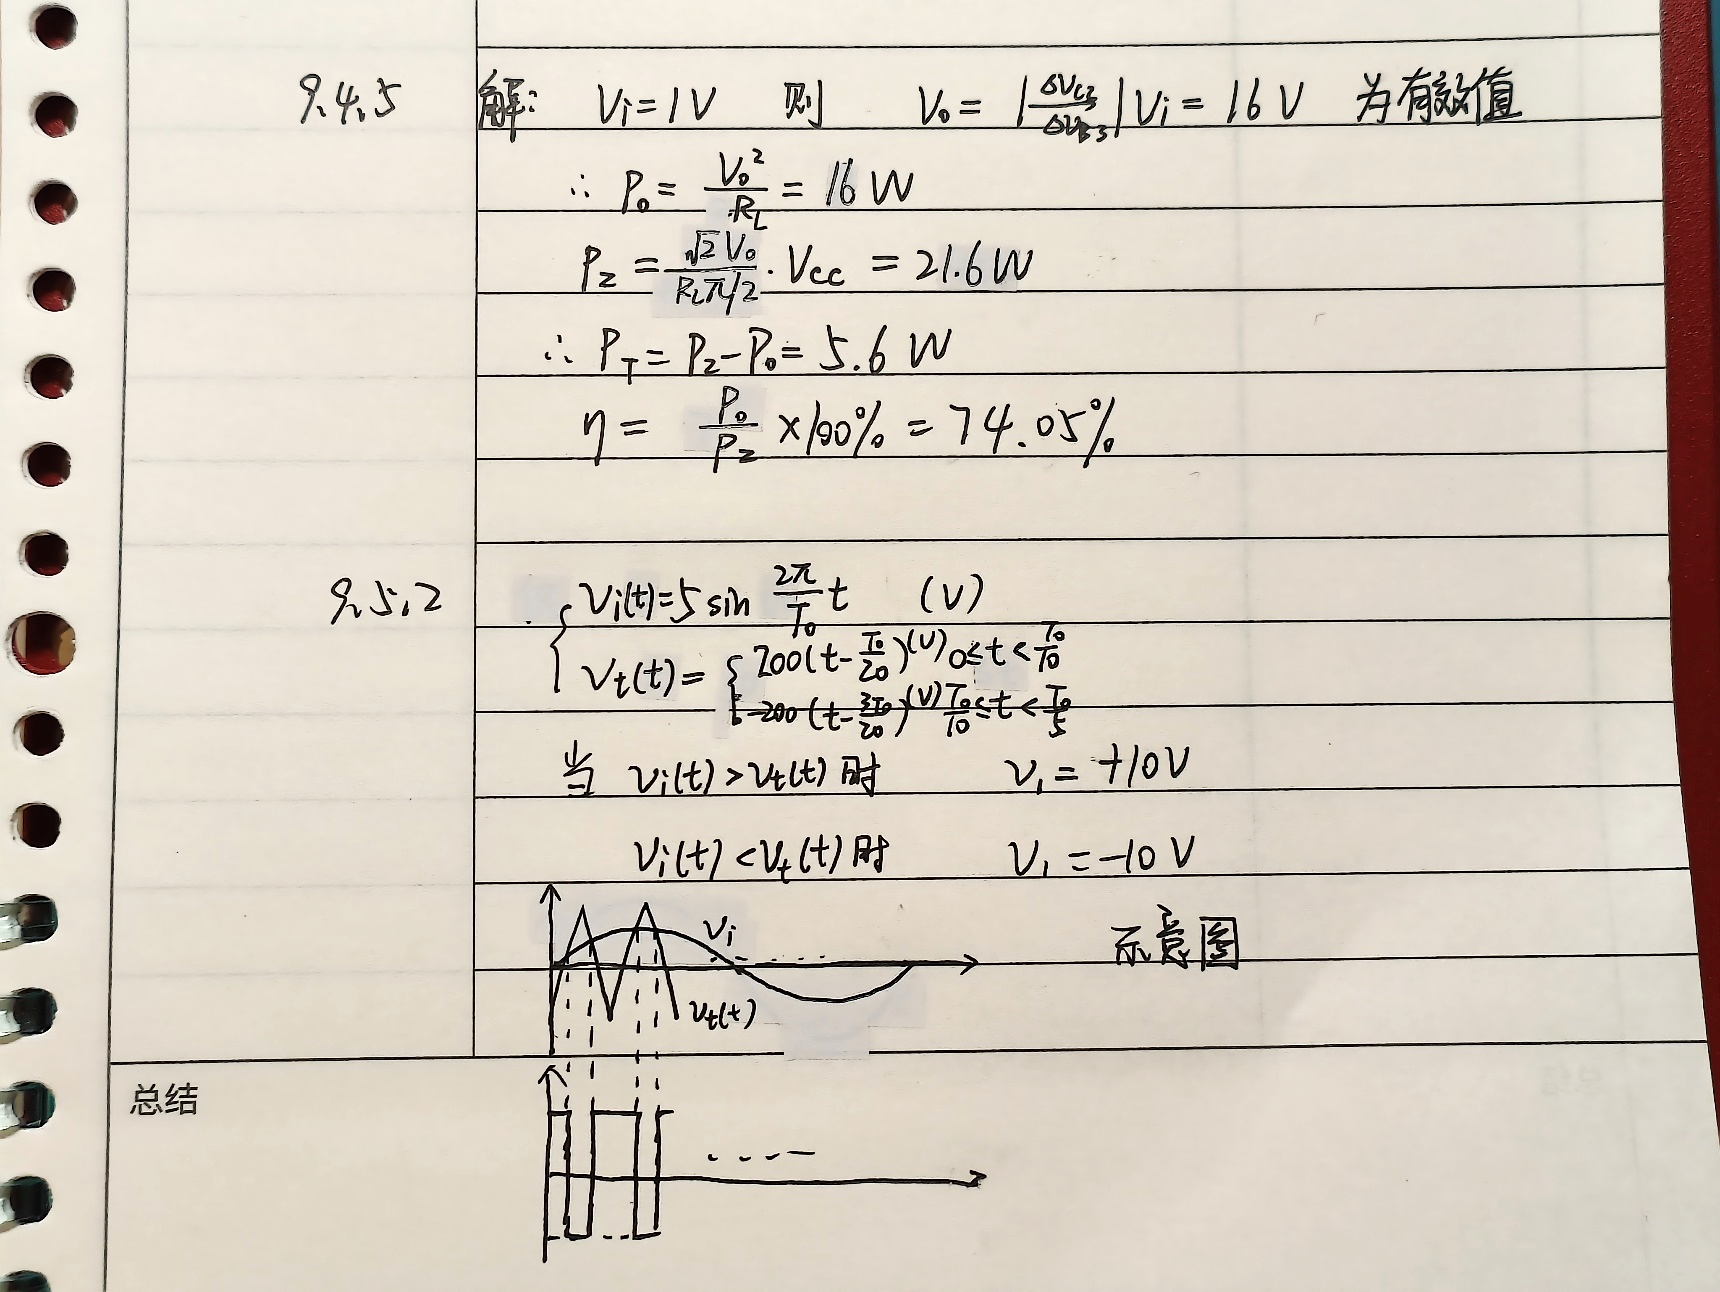 9.4.5 解: Vi=1V 则 Vo= |ΔVC3/ΔVB3|Vi = 16V 为有效值
∴ Po= Vo²/RL = 16W
Pz = √2Vo/(RLπ/2) · Vcc = 21.6W
∴ PT= Pz-Po= 5.6 W
η= Po/Pz ×100% = 74.05%
9.5.2 { vi(t)=5 sin 2π/To t (V)
vt(t)= { 200(t-To/20)(V) 0≤t<To/10
-200(t-3To/20)(V) To/10≤t<To/5
当 vi(t)>vt(t) 时 v1= +10V
vi(t)<vt(t) 时 v1=-10V
vi
示意图
vt(t)
总结